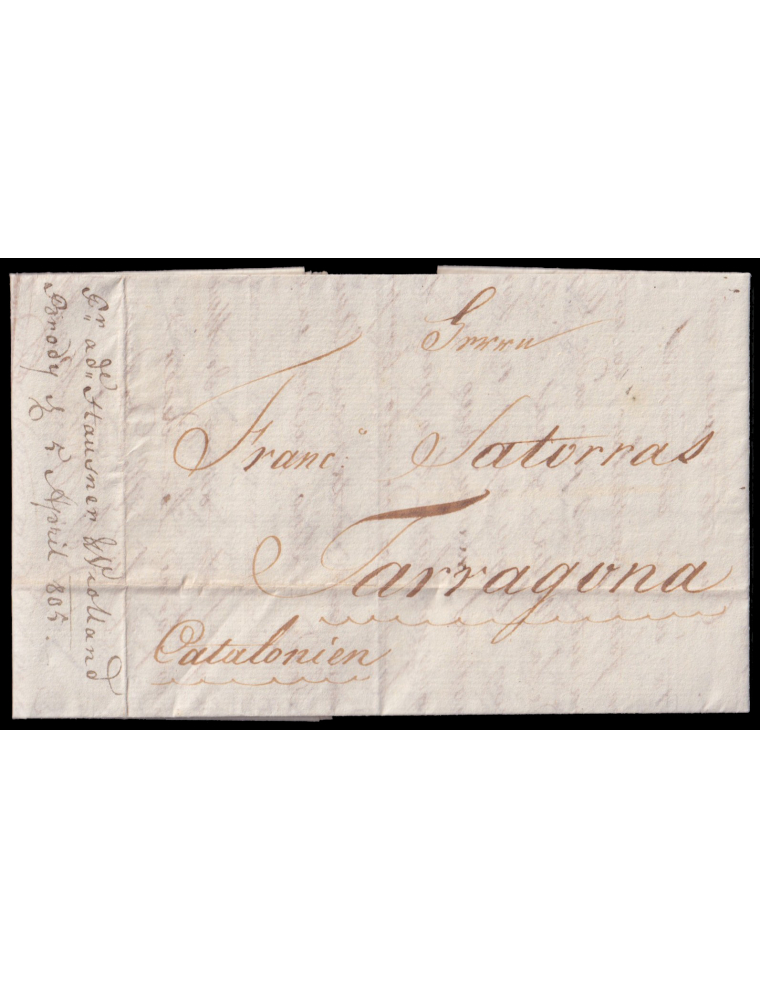 Herrn
Franc.º Satorras
Tarragona
Catalonien
Hausner & Violland
Brody 5 April 805.